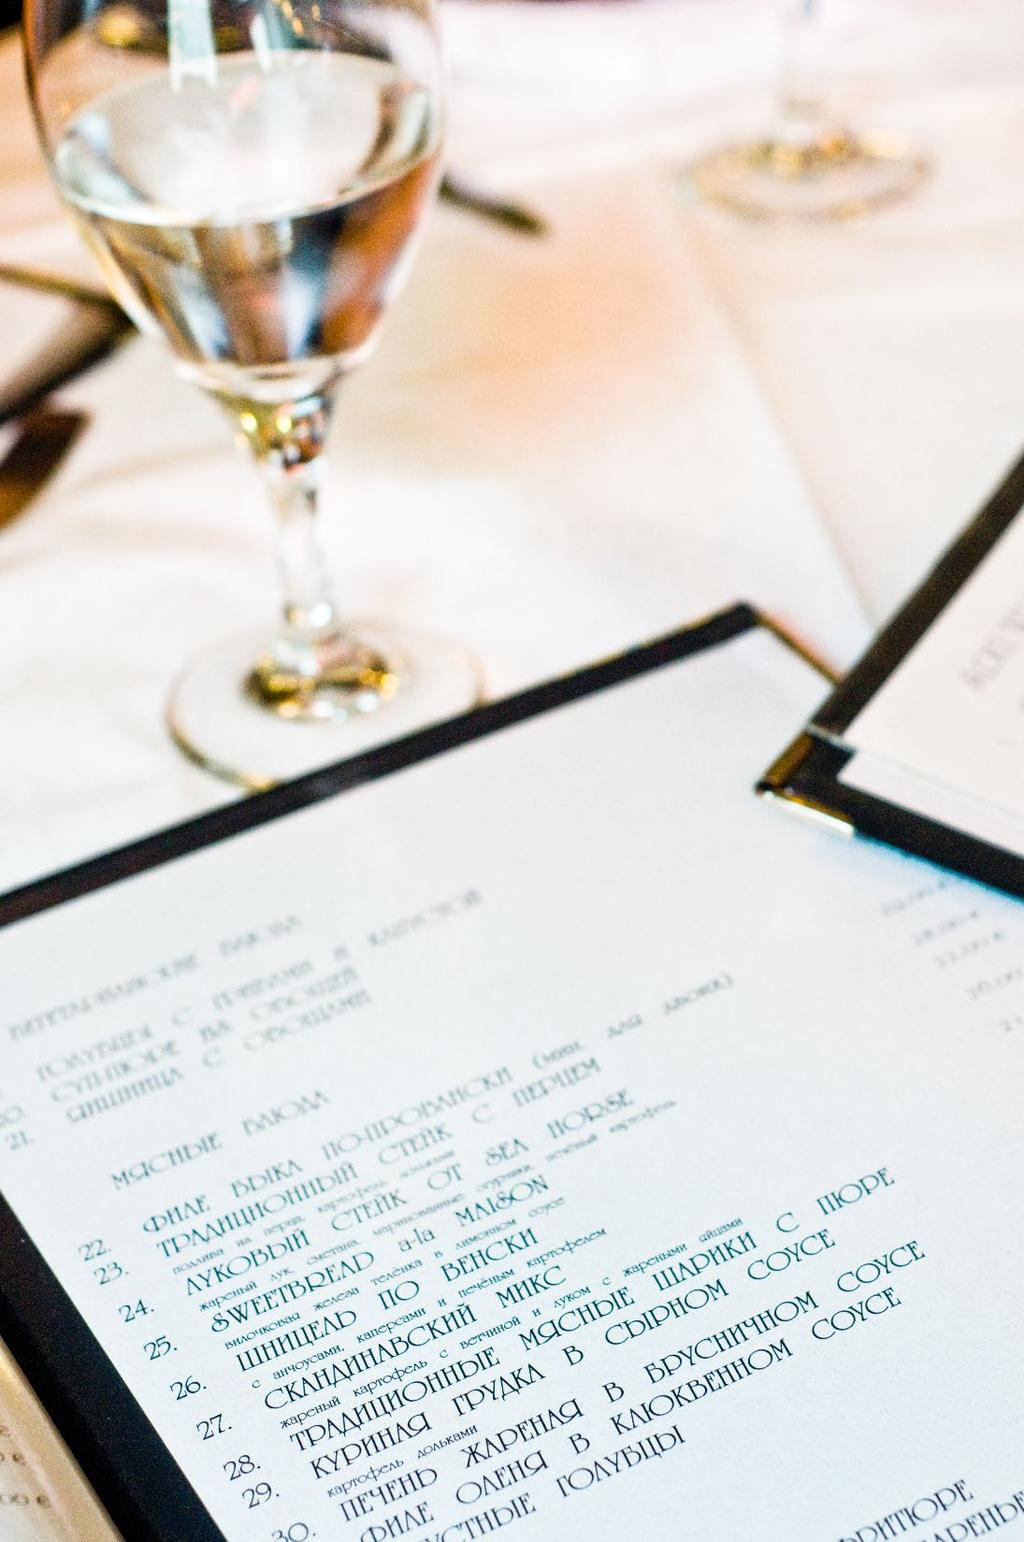 ВЕГЕТАРИАНСКИЕ БЛЮДА
ГОЛУБЦЫ С ГРИБАМИ И КАПУСТОЙ
20. СУП-ПЮРЕ ИЗ ОВОЩЕЙ
21. ЯИЧНИЦА С ОВОЩАМИ
МЯСНЫЕ БЛЮДА
22. ФИЛЕ БЫКА ПО-ПРОВАНСКИ (мин. для двоих)
23. ТРАДИЦИОННЫЙ СТЕЙК С ПЕРЦЕМ
подлива из перца, картофель дольками
24. ЛУКОВЫЙ СТЕЙК ОТ SEA HORSE
жареный лук, сметана, маринованные огурчики, печёный картофель
25. SWEETBREAD a-la MAISON
вилочковая железа телёнка в лимонном соусе
26. ШНИЦЕЛЬ ПО ВЕНСКИ
с анчоусами, каперсами и печёным картофелем
27. СКАНДИНАВСКИЙ МИКС
жареный картофель с ветчиной и луком с жареными яйцами
28. ТРАДИЦИОННЫЕ МЯСНЫЕ ШАРИКИ С ПЮРЕ
29. КУРИНАЯ ГРУДКА В СЫРНОМ СОУСЕ
картофель дольками
30. ПЕЧЕНЬ ЖАРЕНАЯ В БРУСНИЧНОМ СОУСЕ
ФИЛЕ ОЛЕНЯ В КЛЮКВЕННОМ СОУСЕ
УСТНЫЕ ГОЛУБЦЫ
ФРИТЮРЕ
АРЕНЫЕ